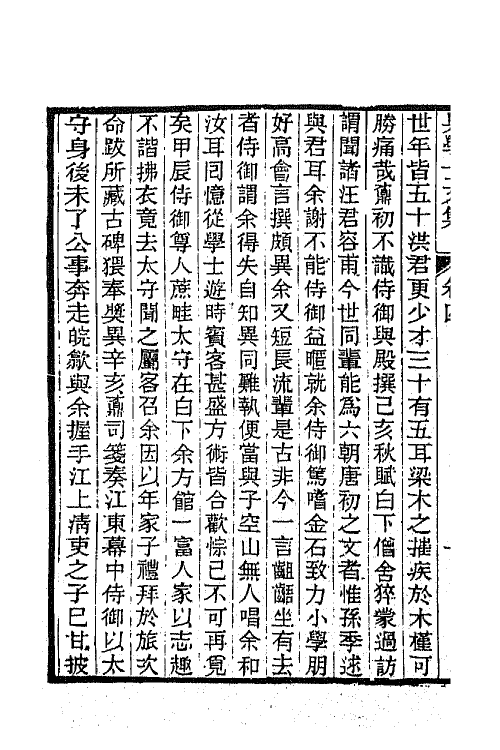 世年皆五十洪君更少才三十有五耳梁木之摧疾於木槿可
勝痛哉鼒初不識侍御與殿撰己亥秋賦白下僧舍猝蒙過訪
謂聞諸汪君容甫今世同輩能為六朝唐初之文者惟孫季逑
與君耳余謝不能侍御益暱就余侍御篤嗜金石致力小學朋
好高會言撰頗異余又短長流輩是古非今一言齟齬坐有去
者侍御謂余得失自知異同難執便當與子空山無人唱余和
汝耳回憶從學士遊時賓客甚盛方術皆合歡悰已不可再覓
矣甲辰侍御尊人蔗畦太守在白下余方館一富人家以志趣
不諧拂衣竟去太守聞之屬客召余因以年家子禮拜於旅次
命跋所藏古碑猥奉獎異辛亥鼒司箋奏江東幕中侍御以太
守身後未了公事奔走皖歙與余握手江上清吏之子巳甘披